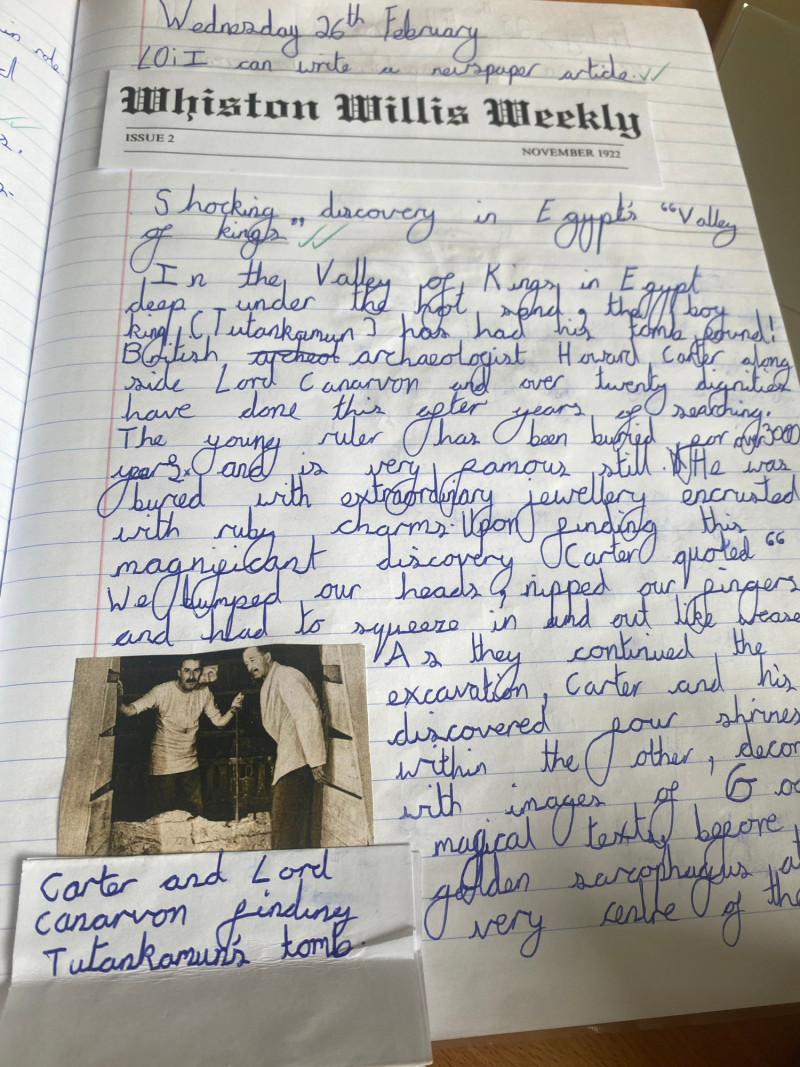 Wednesday 26th February
LO: I can write a newspaper article.
Whiston Willis Weekly
ISSUE 2
NOVEMBER 1922
Shocking discovery in Egypt's "Valley
of kings"
In the Valley of Kings in Egypt
deep under the hot sand, the boy
king (Tutankamun) has had his tomb found!
British archaeologist Howard Carter along
side Lord Canarvon and over twenty dignities
have done this after years of searching.
The young ruler has been buried for over 3000
years. and is very famous still. He was
buried with extraordinary jewellery encrusted
with ruby charms. Upon finding this
magnificant discovery Carter quoted "
We bumped our heads, nipped our fingers
and had to squeeze in and out like
As they continued the
excavation, Carter and his
discovered four shrines
within the other,
with images of
magical texts, before
golden sarcophagus
very centre of the
Carter and Lord
Canarvon finding
Tutankamun's tomb.